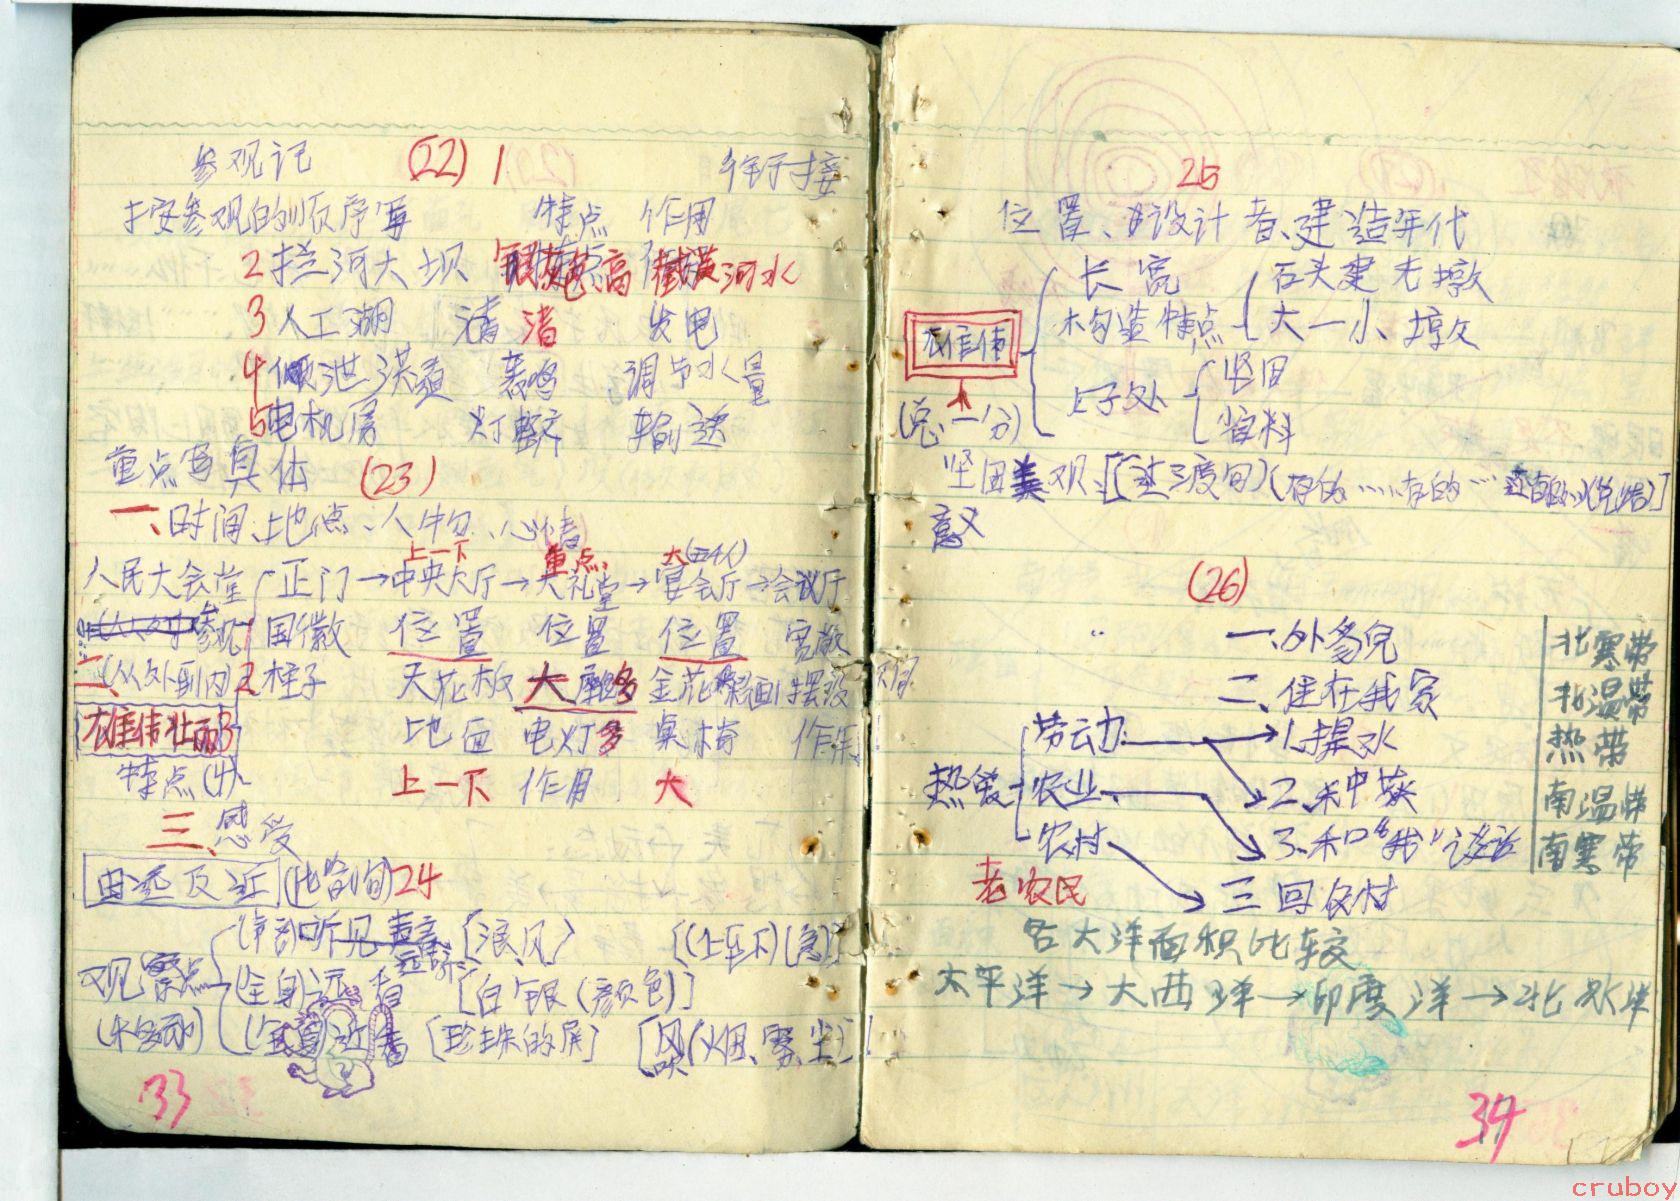 参观记 (22) 1 衔接
按参观的顺序写 特点 作用
2 拦河大坝 高 河水
3 人工湖 清 清 发电
4 倾泄洪道 轰鸣 调节水量
5 电机房 灯 整齐 输送
重点写具体 (23)
一、时间、地点、人物、心情
上一下 重点、 大(五千人)
人民大会堂 正门→中央大厅→大礼堂→宴会厅→会议厅
参观 1 国徽 位置 位置 位置 宽敞
二、(从外到内) 2 柱子 天花板 大 多 金花 彩画 摆设
雄伟壮丽 3 地面 电灯多 桌椅 作用
特点 (4) 上一下 作用 大
三、感受
由远及近 (比喻句) 24
所见 [浪、风] [(上至下)(急)]
观察点 (全身)远 [白银(颜色)]
(未多动) 近 看 [珍珠的屏] [风吹(烟、雾、尘)]
33
25
位置、设计者、建造年代
长宽 石头建 无墩
雄伟 构造特点 大一小、墩
坚固
(总一分) 好处 省料
坚固美观、[(过渡句)(有的……有的……还有)]
(26)
一、外爹兒
二、住在我家
劳动 1、提水
热爱 农业 2、种菜
农村 3、和“我”谈话
老农民 三 回农村
北寒带
北温带
热带
南温带
南寒带
各大洋面积比较
太平洋→大西洋→印度洋→北冰洋
34
cruboy